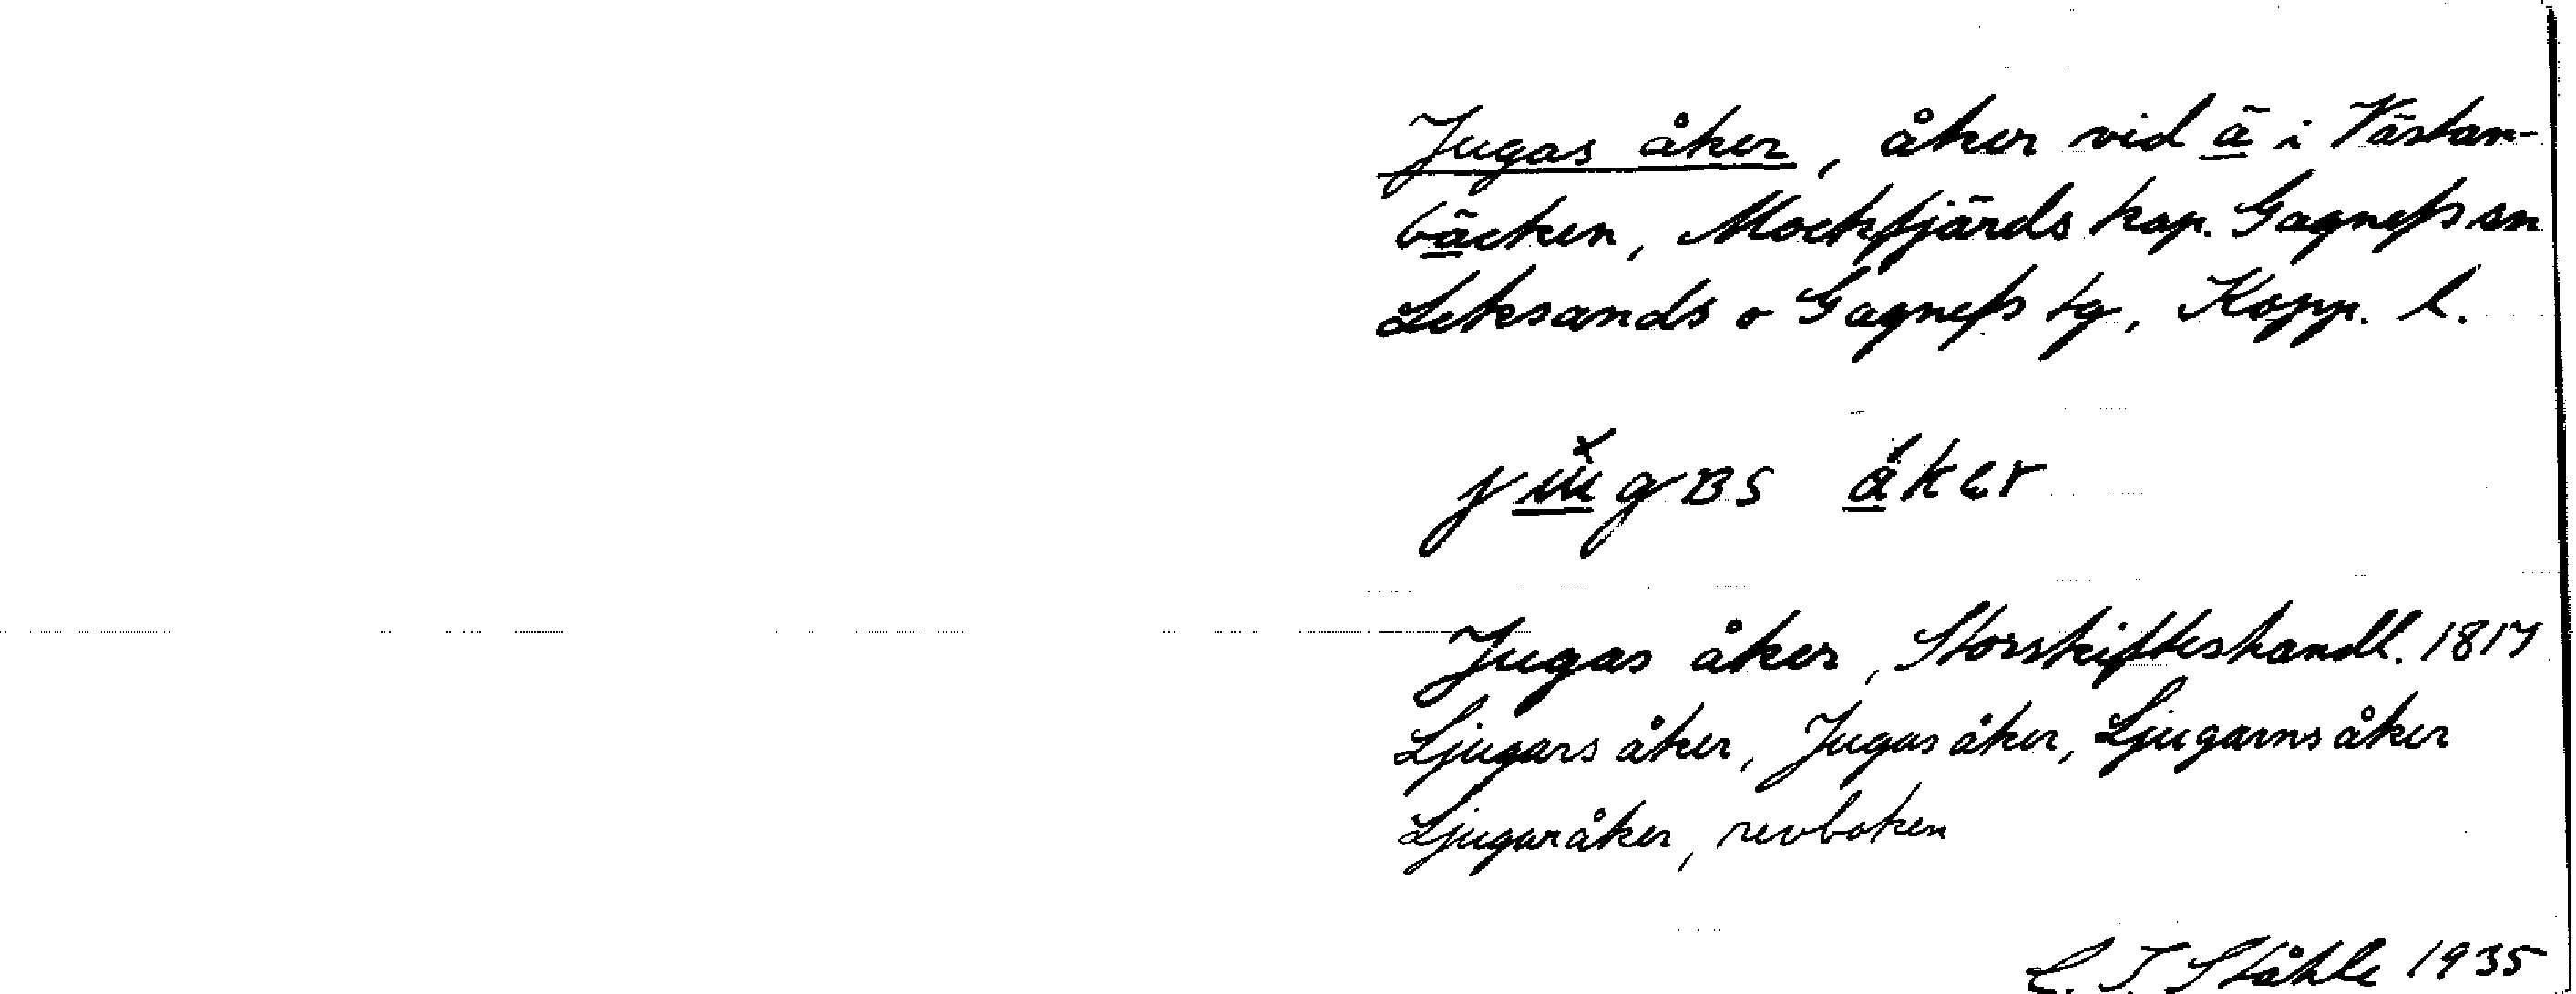 Jugas åker, åker vid ä i Västan-
bäcken, Mockfjärds kap. Gagnefs sn
Leksands o Gagnefs tg, Kopp. l.
Jugas åker, Storskifteshandl. 1817
Ljugars åker, Jugas åker, Ljugarns åker
Ljugaråker, revboken
C. I. Ståhle 1935